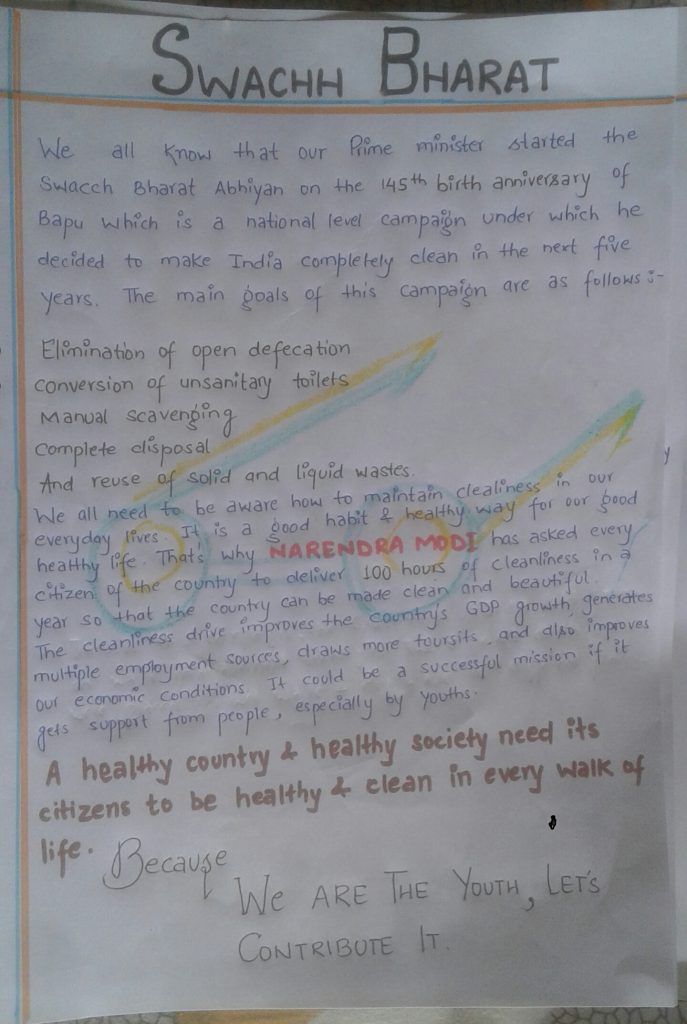 SWACHH BHARAT
We all know that our Prime minister started the
Swacch Bharat Abhiyan on the 145th birth anniversary of
Bapu which is a national level campaign under which he
decided to make India completely clean in the next five
years. The main goals of this campaign are as follows :-
Elimination of open defecation
conversion of unsanitary toilets
Manual scavenging
Complete disposal
And reuse of solid and liquid wastes.
We all need to be aware how to maintain clealiness in our
everyday lives. It is a good habit & healthy way for oor good
healthy life. That's why NARENDRA MODI has asked every
citizen of the country to deliver 100 hours of cleanliness in a
year so that the country can be made clean and beautiful.
The cleanliness drive improves the country's GDP growth, generates
multiple employment sources, draws more toursits, and also improves
our economic conditions. It could be a successful mission if it
gets support from people, especially by youths.
A healthy country & healthy society need its
citizens to be healthy & clean in every walk of
life. Because
WE ARE THE YOUTH, LET'S
CONTRIBUTE IT.